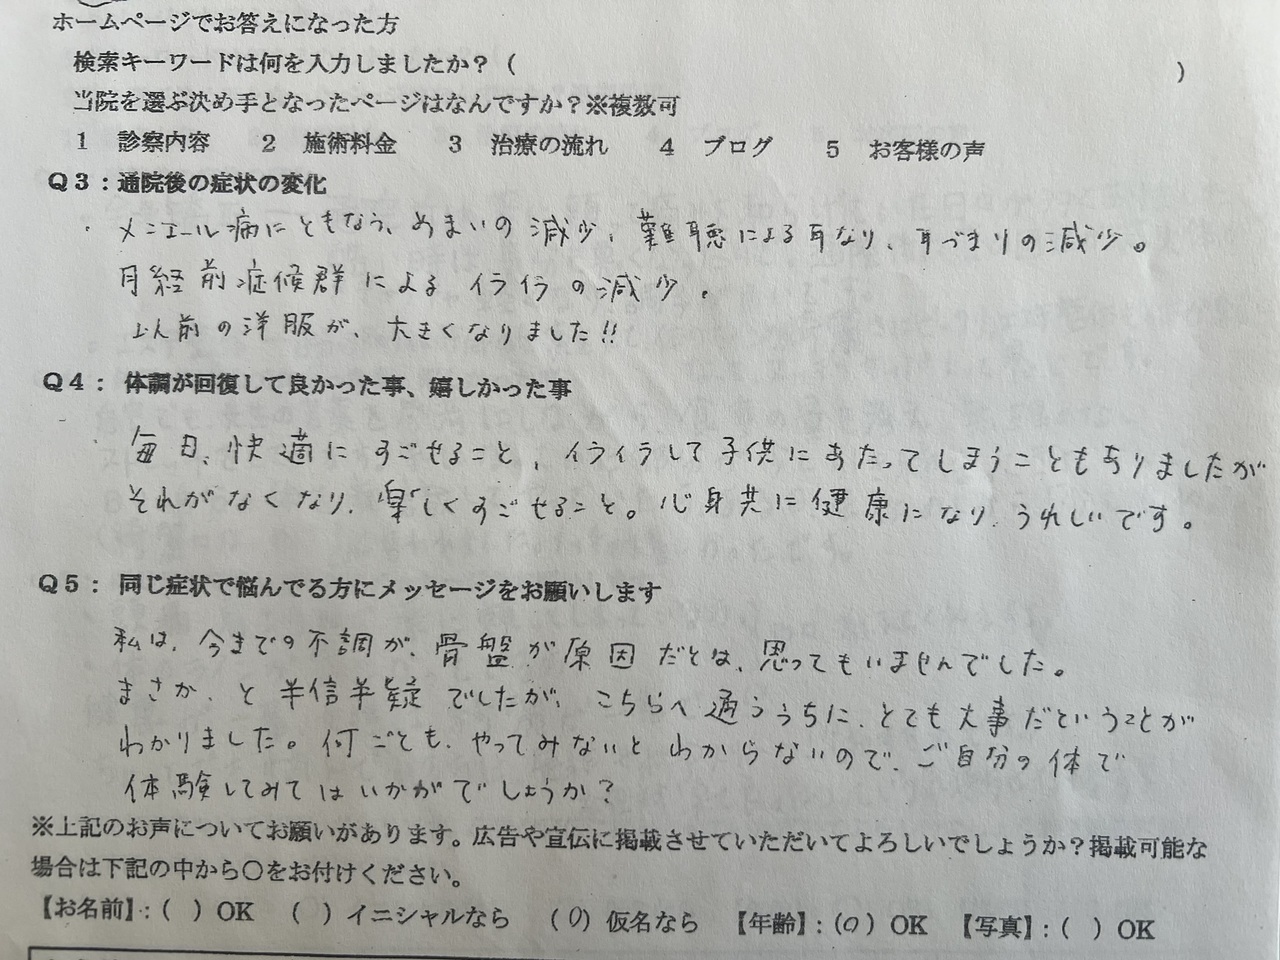 ホームページでお答えになった方
検索キーワードは何を入力しましたか？（ ）
当院を選ぶ決め手となったページはなんですか？※複数可
1 診察内容 2 施術料金 3 治療の流れ 4 ブログ 5 お客様の声
Q3：通院後の症状の変化
・メニエール病にともなう、めまいの減少、難聴による耳なり、耳づまりの減少。
月経前症候群による イライラの減少。
以前の洋服が、大きくなりました!!
Q4： 体調が回復して良かった事、嬉しかった事
毎日、快適にすごせること、イライラして子供にあたってしまうこともありましたが
それがなくなり、楽しくすごせること。心身共に健康になり、うれしいです。
Q5： 同じ症状で悩んでる方にメッセージをお願いします
私は、今までの不調が、骨盤が原因だとは、思ってもいませんでした。
まさか、と半信半疑でしたが、こちらへ通ううちに、とても大事だということが
わかりました。何ごとも、やってみないとわからないので、ご自分の体で
体験してみてはいかがでしょうか？
※上記のお声についてお願いがあります。広告や宣伝に掲載させていただいてよろしいでしょうか？掲載可能な
場合は下記の中から〇をお付けください。
【お名前】：（ ）OK （ ）イニシャルなら （○）仮名なら 【年齢】：（○）OK 【写真】：（ ）OK